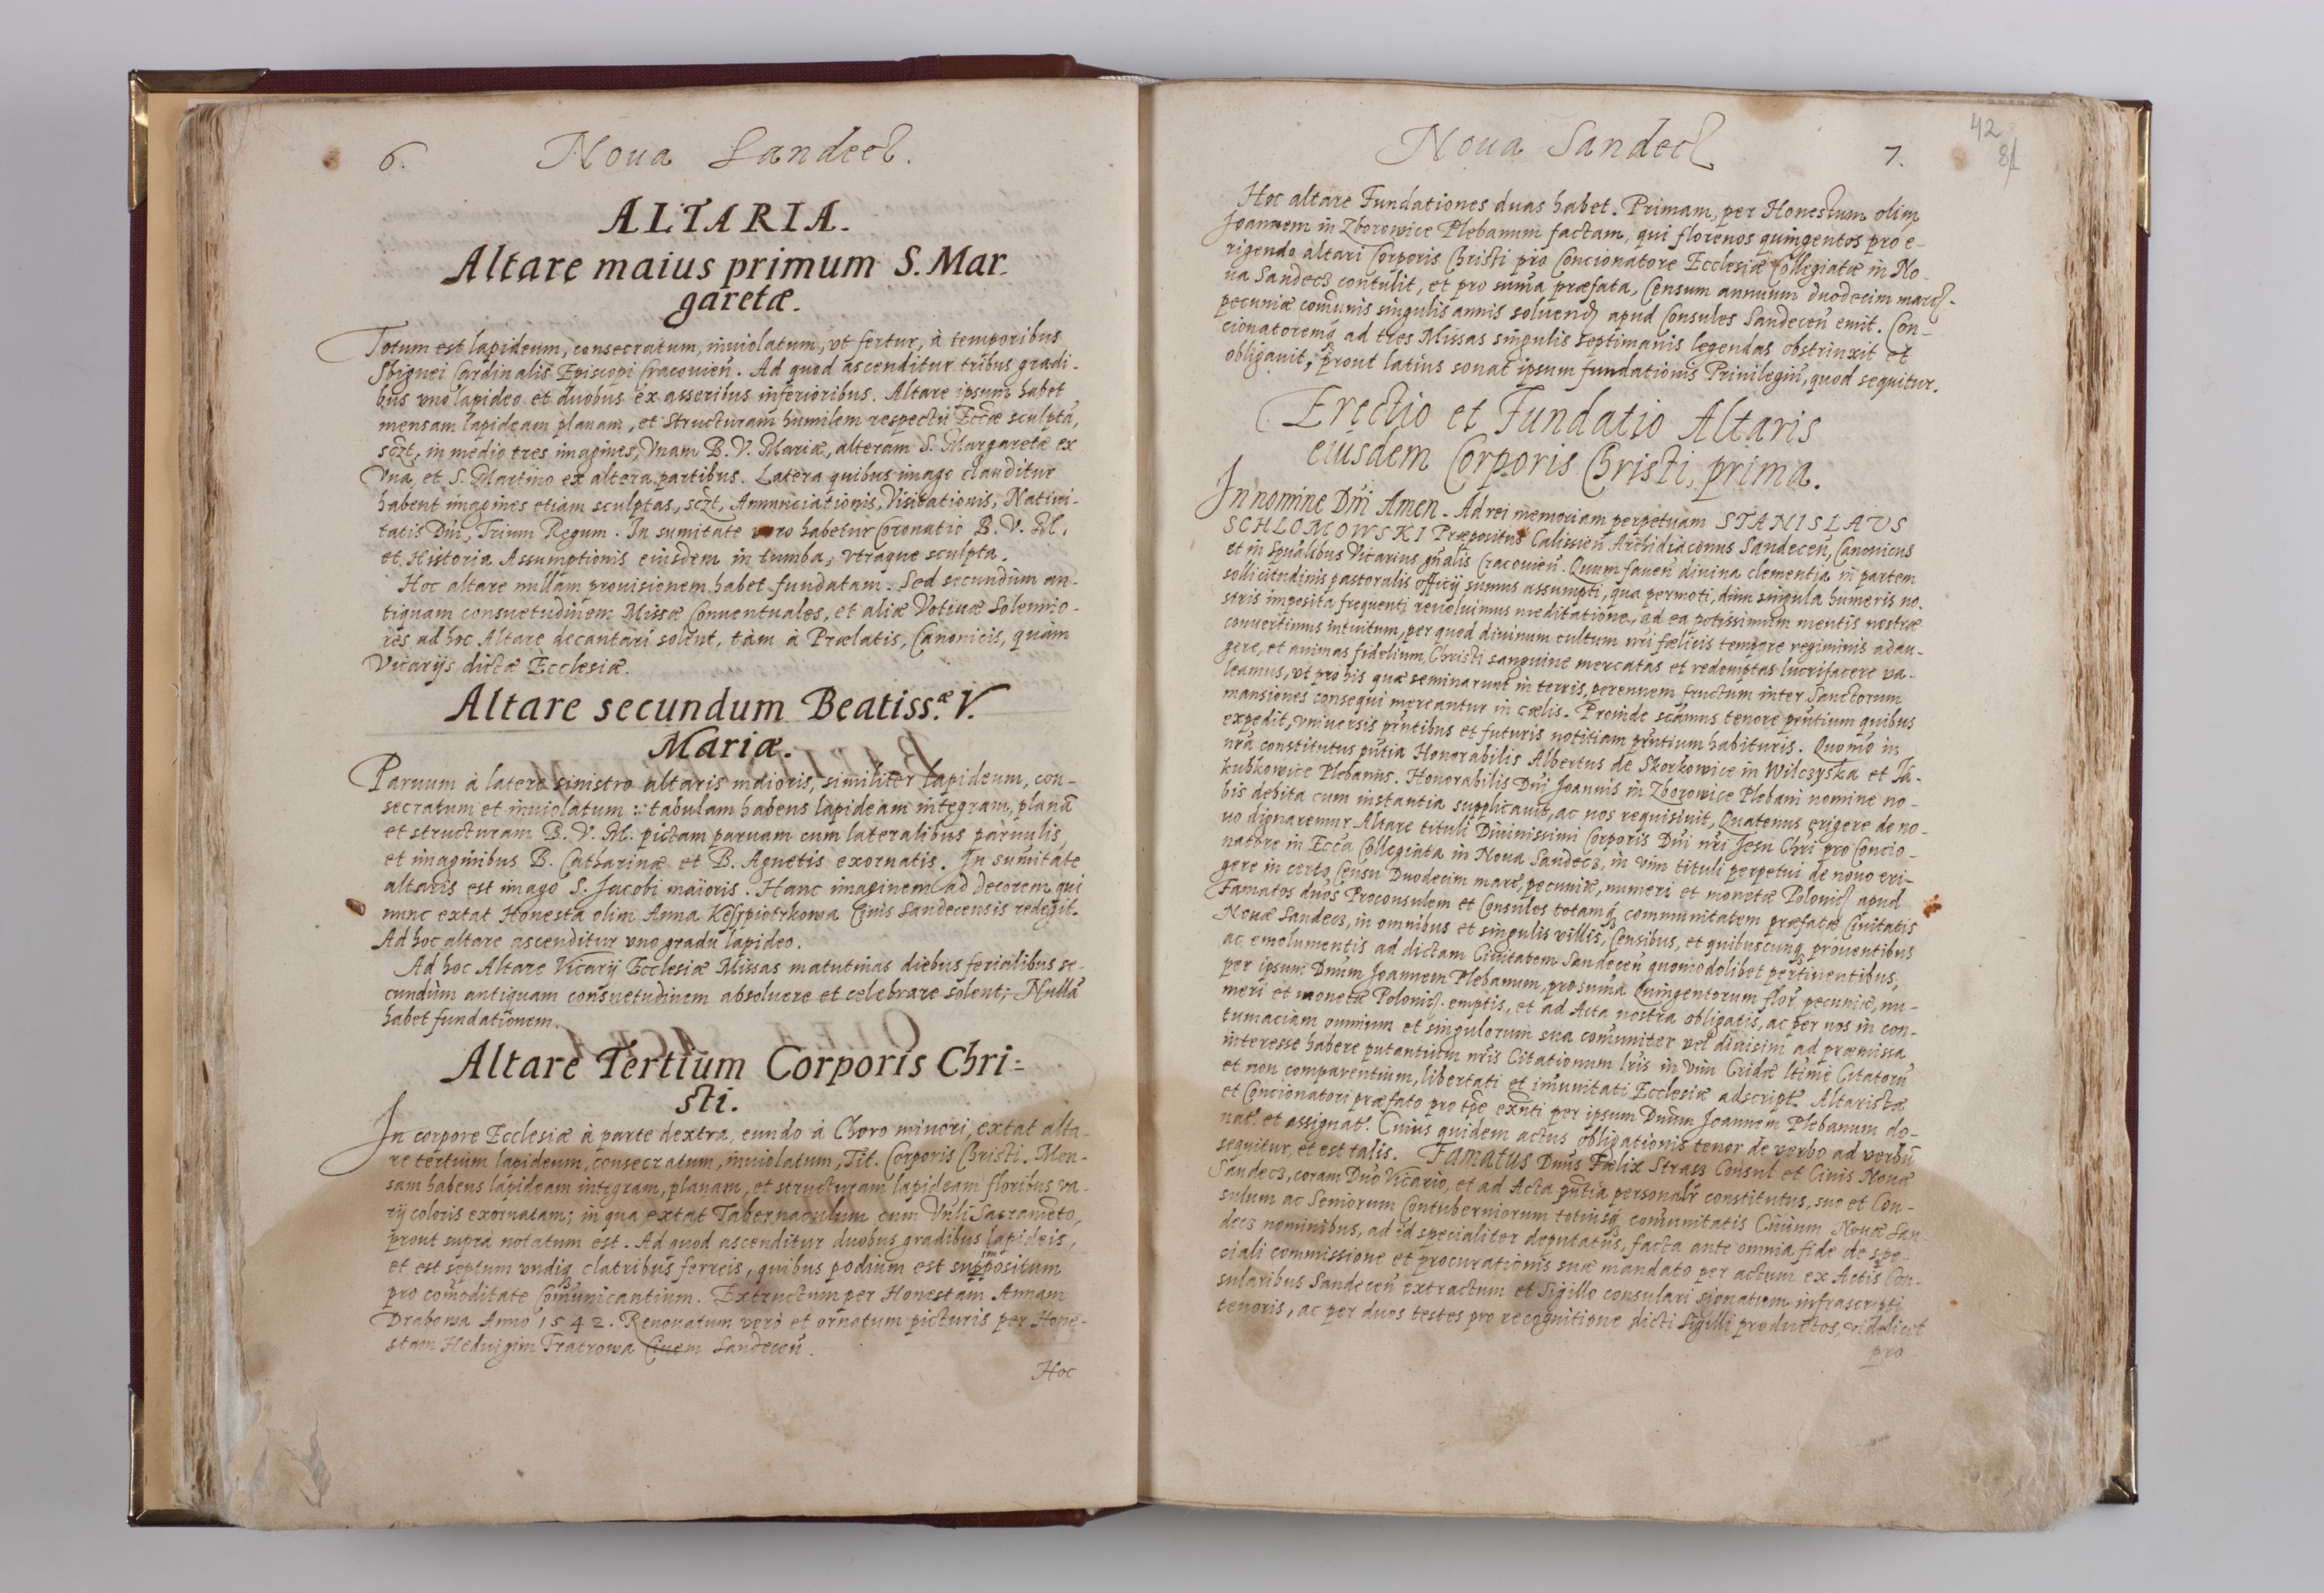 6. Noua Sandecz.
ALTARIA.
Altare maius primum S. Mar-
garetæ.
Totum est lapideum, consecratum, inuiolatum, vt fertur, à temporibus
Sbignei Cardinalis Episcopi Cracouień. Ad quod ascenditur tribus gradi-
bus vno lapideo et duobus ex asseribus inferioribus. Altare ipsum habet
mensam lapideam planam, et structuram humilem respectu Eccæ sculptā,
sczt, in medio tres imagines, Vnam B. V. Mariæ, alteram S. Margaretæ ex
Vna, et S. Martino ex altera partibus. Latera quibus imago clauditur
habent imagines etiam sculptas, sczt, Annunciationis, Visitationis, Natiui-
tatis Dni, Trium Regum. In sumitate vero habetur Coronatio B. V. M.
et Historia Assumptionis eiusdem in tumba, vtraque sculpta.
Hoc altare nullam prouisionem habet fundatam. Sed secundùm an-
tiquam consuetudinem Missæ Conuentuales, et aliæ Votiuæ Solennio-
res ad hoc Altare decantari solent, tàm à Prælatis, Canonicis, quàm
Vicarijs dictæ Ecclesiæ.
Altare secundum Beatiss.æ V.
Mariæ.
Paruum à latere sinistro altaris maioris, similiter lapideum, con-
secratum et inuiolatum: tabulam habens lapideam integram, planā
et structuram B. V. M. pictam paruam cum lateralibus paruulis,
et imaginibus B. Catharinæ et B. Agnetis exornatis. In sumitate
altaris est imago S. Jacobi maioris. Hanc imaginem ad decorem qui
nunc extat Honesta olim Anna Ciuis Sandecensis redegit.
Ad hoc altare ascenditur vno gradu lapideo.
Ad hoc Altare Vicarij Ecclesiæ Missas matutinas diebus ferialibus se-
cundùm antiquam consuetudinem absoluere et celebrare solent; Nullā
habet fundationem.
Altare Tertium Corporis Chri-
sti.
In corpore Ecclesiæ à parte dextra, eundo à Choro minori, extat alta-
re tertium lapideum, consecratum, inuiolatum, Tit. Corporis Christi. Men-
sam habens lapideam integram, planam, et structuram lapideam floribus va-
rij coloris exornatam; in qua extat Tabernaculum cum Vnli Sacramēto,
prout suprà notatum est. Ad quod ascenditur duobus gradibus lapideis,
et est septum vndiq clatribus ferreis, quibus podium est suppositum
pro comoditate Comunicantium. Extructum per Honestam Annam
Drabowa Anno 1542. Renouatum verò et ornatum picturis per Hone-
stam Heduigim Fratrowa Ciuem Sandeceń.
Hoc
Noua Sandecz 7.
42
81
Hoc altare Fundationes duas habet. Primam, per Honestum olim
Joannem in Zborowice Plebanum factam, qui florenos quingentos pro e-
rigendo altari Corporis Christi pro Concionatore Ecclesiæ Collegiatæ in No-
ua Sandecz contulit, et pro suma præfata, Censum annuum duodecim marc.
pecuniæ comunis singulis annis soluend apud Consules Sandeceń emit. Con-
cionatoremq ad tres Missas singulis septimanis legendas obstrinxit et
obligauit, prout latius sonat ipsum fundationis Priuilegiū, quod sequitur.
Erectio et Fundatio Altaris
eiusdem Corporis Christi, prima.
In nomine Dni Amen. Ad rei memoriam perpetuam STANISLAVS
SCHLOMOWSKI Præpositus Calissień Archidiaconus Sandeceń, Canonicus
et in Spualibus Vicarius gnalis Cracouień. Quum fauen diuina clementia in partem
sollicitudinis pastoralis officij sumus assumpti, qua permoti, dum singula humeris no-
stris imposita frequenti reuoluimus meditatione, ad ea potissimum mentis nostræ
conuertimus intuitum, per quod diuinum cultum nri fælicis tempore regiminis adau-
gere, et animas fidelium, Christi sanguine mercatas et redemptas lucrifacere va-
leamus, vt pro his quæ seminarunt in terris, perennem fructum inter Sanctorum
mansiones consequi mereantur in cælis. Proinde tenore pntium quibus
expedit, vniuersis pntibus et futuris notitiam pntium habituris. Quomo in
nra constitutus pntia Honorabilis Albertus de Skorkowice in Wilczyska et Ja-
kubkowice Plebanus. Honorabilis Dni Joannis in Zborowice Plebani nomine no-
bis debita cum instantia supplicauit, ac nos requisiuit, Quatenus erigere de no-
uo dignaremur Altare tituli Diuinissimi Corporis Dni nri Jesu Chri pro Concio-
natore in Ecca Collegiata in Noua Sandecz, in vim tituli perpetui de nouo eri-
gere in certo Censu Duodecim marc, pecuniæ, numeri et monetæ Polonic apud
Famatos duos Proconsulem et Consules totamq communitatem præfatæ Ciuitatis
Nouæ Sandecz, in omnibus et singulis villis, Censibus, et quibuscunq prouentibus
ac emolumentis ad dictam Ciuitatem Sandeceń quomodolibet pertinentibus,
per ipsum Dnum Joannem Plebanum, pro suma Quingentorum flor pecuniæ, nu-
meri et monetæ Polonic. emptis, et ad Acta nostra obligatis, ac per nos in con-
tumaciam omnium et singulorum sua comuniter vel diuisim ad præmissa
interesse habere putantium nris Citationum lris in vim Cridæ ltime Citatorū
et non comparentium, libertati et imunitati Ecclesiæ adscript. Altaristæ
et Concionatori præfato pro tpe exnti per ipsum Dnum Joannem Plebanum do-
nat. et assignat. Cuius quidem actus obligationis tenor de verbo ad verbū
sequitur, et est talis. Famatus Dnus Fælix Strasz Consul et Ciuis Nouæ
Sandecz, coram Dno Vicario, et ad Acta pntia personalr constitutus, suo et Con-
sulum ac Seniorum Contuberniorum totiusq comunitatis Ciuium Nouæ San-
decz nominibus, ad id specialiter deputatus, facta ante omnia fide de spe-
ciali commissione et procurationis suæ mandato per actum ex Actis Con-
sularibus Sandeceń extractum et Sigillo consulari signatum infrascripti
tenoris, ac per duos testes pro recognitione dicti Sigilli productos, videlicet
pro